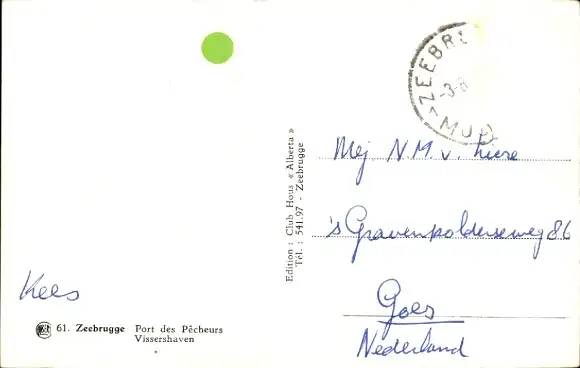 ZEEBRU
-3-8
Mej N.M. v. Liere
's Gravenpolderseweg 86
Goes
Nederland
Edition : Club Hous « Alberta »
Tél. : 541.97 - Zeebrugge
Kees
61. Zeebrugge Port des Pêcheurs
Vissershaven